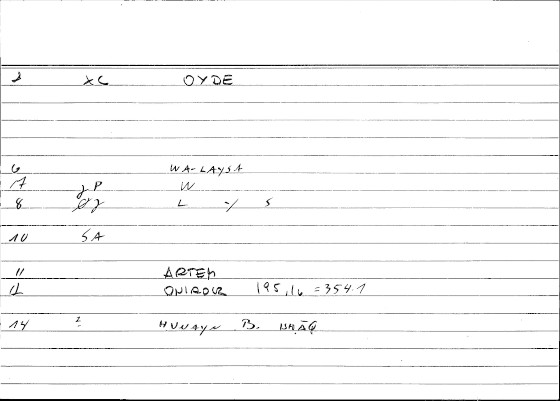 2 XC OYDE
6 WA-LAYSA
7 JP W
8 L -/ S
10 SA
11 ARTEM
12 ONIROCR 195,16 = 354.1
14 ? HUNAYN B. ISḤĀQ